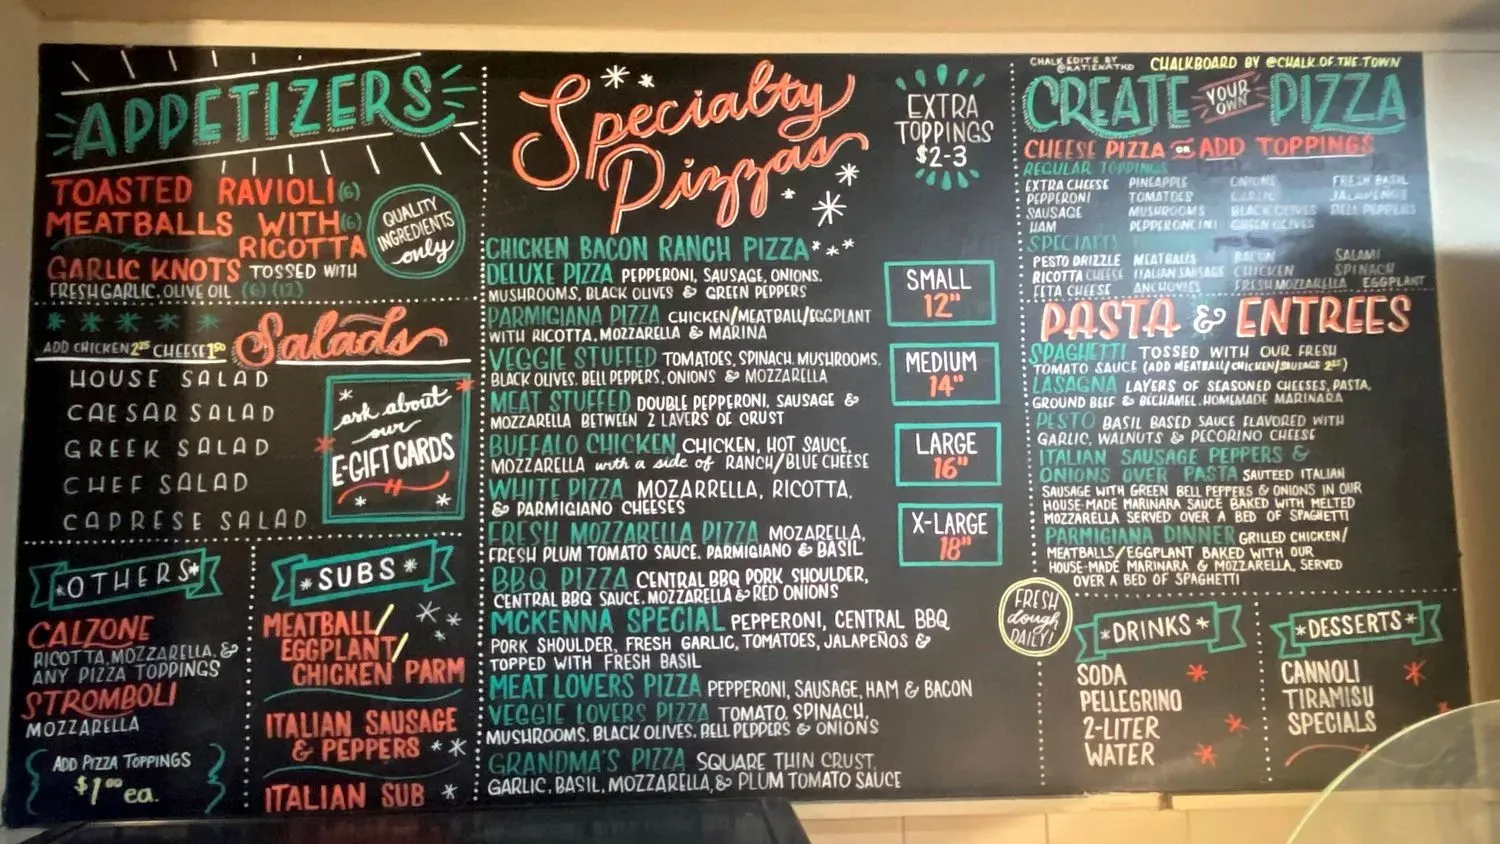 APPETIZERS
TOASTED RAVIOLI (6)
MEATBALLS WITH (6)
RICOTTA
GARLIC KNOTS TOSSED WITH
FRESH GARLIC, OLIVE OIL (6) (12)
QUALITY
INGREDIENTS
only
Salads
ADD CHICKEN 2.25 CHEESE 1.50
HOUSE SALAD
CAESAR SALAD
GREEK SALAD
CHEF SALAD
CAPRESE SALAD
ask about
our
E-GIFT CARDS
OTHERS
CALZONE
RICOTTA, MOZZARELLA, &
ANY PIZZA TOPPINGS
STROMBOLI
MOZZARELLA
ADD PIZZA TOPPINGS
$1.00 ea.
SUBS
MEATBALL/
EGGPLANT/
CHICKEN PARM
ITALIAN SAUSAGE
& PEPPERS
ITALIAN SUB
Specialty
Pizzas
EXTRA
TOPPINGS
$2-3
CHICKEN BACON RANCH PIZZA
DELUXE PIZZA PEPPERONI, SAUSAGE, ONIONS,
MUSHROOMS, BLACK OLIVES & GREEN PEPPERS
PARMIGIANA PIZZA CHICKEN/MEATBALL/EGGPLANT
WITH RICOTTA, MOZZARELLA & MARINA
VEGGIE STUFFED TOMATOES, SPINACH, MUSHROOMS,
BLACK OLIVES, BELL PEPPERS, ONIONS & MOZZARELLA
MEAT STUFFED DOUBLE PEPPERONI, SAUSAGE &
MOZZARELLA BETWEEN 2 LAYERS OF CRUST
BUFFALO CHICKEN CHICKEN, HOT SAUCE,
MOZZARELLA with a side of RANCH/BLUE CHEESE
WHITE PIZZA MOZARRELLA, RICOTTA,
& PARMIGIANO CHEESES
FRESH MOZZARELLA PIZZA MOZARELLA,
FRESH PLUM TOMATO SAUCE, PARMIGIANO & BASIL
BBQ PIZZA CENTRAL BBQ PORK SHOULDER,
CENTRAL BBQ SAUCE, MOZZARELLA & RED ONIONS
MCKENNA SPECIAL PEPPERONI, CENTRAL BBQ
PORK SHOULDER, FRESH GARLIC, TOMATOES, JALAPEÑOS &
TOPPED WITH FRESH BASIL
MEAT LOVERS PIZZA PEPPERONI, SAUSAGE, HAM & BACON
VEGGIE LOVERS PIZZA TOMATO, SPINACH,
MUSHROOMS, BLACK OLIVES, BELL PEPPERS & ONIONS
GRANDMA'S PIZZA SQUARE THIN CRUST,
GARLIC, BASIL, MOZZARELLA, & PLUM TOMATO SAUCE
SMALL
12"
MEDIUM
14"
LARGE
16"
X-LARGE
18"
CHALK EDITS BY
@KATIEKATKD
CHALKBOARD BY @CHALK.OF.THE.TOWN
CREATE YOUR OWN PIZZA
CHEESE PIZZA OR ADD TOPPINGS
REGULAR TOPPINGS
EXTRA CHEESE PINEAPPLE ONIONS FRESH BASIL
PEPPERONI TOMATOES GARLIC JALAPENOS
SAUSAGE MUSHROOMS BLACK OLIVES BELL PEPPERS
HAM PEPPERONCINI GREEN OLIVES
SPECIALTY
PESTO DRIZZLE MEATBALLS BACON SALAMI
RICOTTA CHEESE ITALIAN SAUSAGE CHICKEN SPINACH
FETA CHEESE ANCHOVIES FRESH MOZZARELLA EGGPLANT
PASTA & ENTREES
SPAGHETTI TOSSED WITH OUR FRESH
TOMATO SAUCE (ADD MEATBALL/CHICKEN/SAUSAGE 2.25)
LASAGNA LAYERS OF SEASONED CHEESES, PASTA,
GROUND BEEF & BECHAMEL. HOMEMADE MARINARA
PESTO BASIL BASED SAUCE FLAVORED WITH
GARLIC, WALNUTS & PECORINO CHEESE
ITALIAN SAUSAGE PEPPERS &
ONIONS OVER PASTA SAUTEED ITALIAN
SAUSAGE WITH GREEN BELL PEPPERS & ONIONS IN OUR
HOUSE-MADE MARINARA SAUCE BAKED WITH MELTED
MOZZARELLA SERVED OVER A BED OF SPAGHETTI
PARMIGIANA DINNER GRILLED CHICKEN/
MEATBALLS/EGGPLANT BAKED WITH OUR
HOUSE-MADE MARINARA & MOZZARELLA, SERVED
OVER A BED OF SPAGHETTI
FRESH
dough
DAILY!
DRINKS
SODA
PELLEGRINO
2-LITER
WATER
DESSERTS
CANNOLI
TIRAMISU
SPECIALS